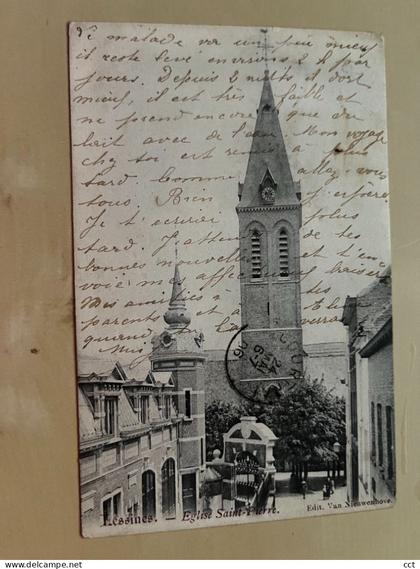 malade va un peu mieux
il reste levé environs 2 h par
jours. Depuis 2 nuits il dort
mieux, il est très faible et
ne prend encore que du
lait avec de l'eau. Mon voyage
chez toi est remis à plus
tard. Comme allez-
vous. Bien j'espère.
Je t'écrirai plus
tard. J'attends de tes
bonnes nouvelles et t'en-
voie mes affectueux baisers
Mes amitiés à tes
parents
quand verras
LESSINES. - Eglise Saint-Pierre.
Edit. Van Nieuwenhove.